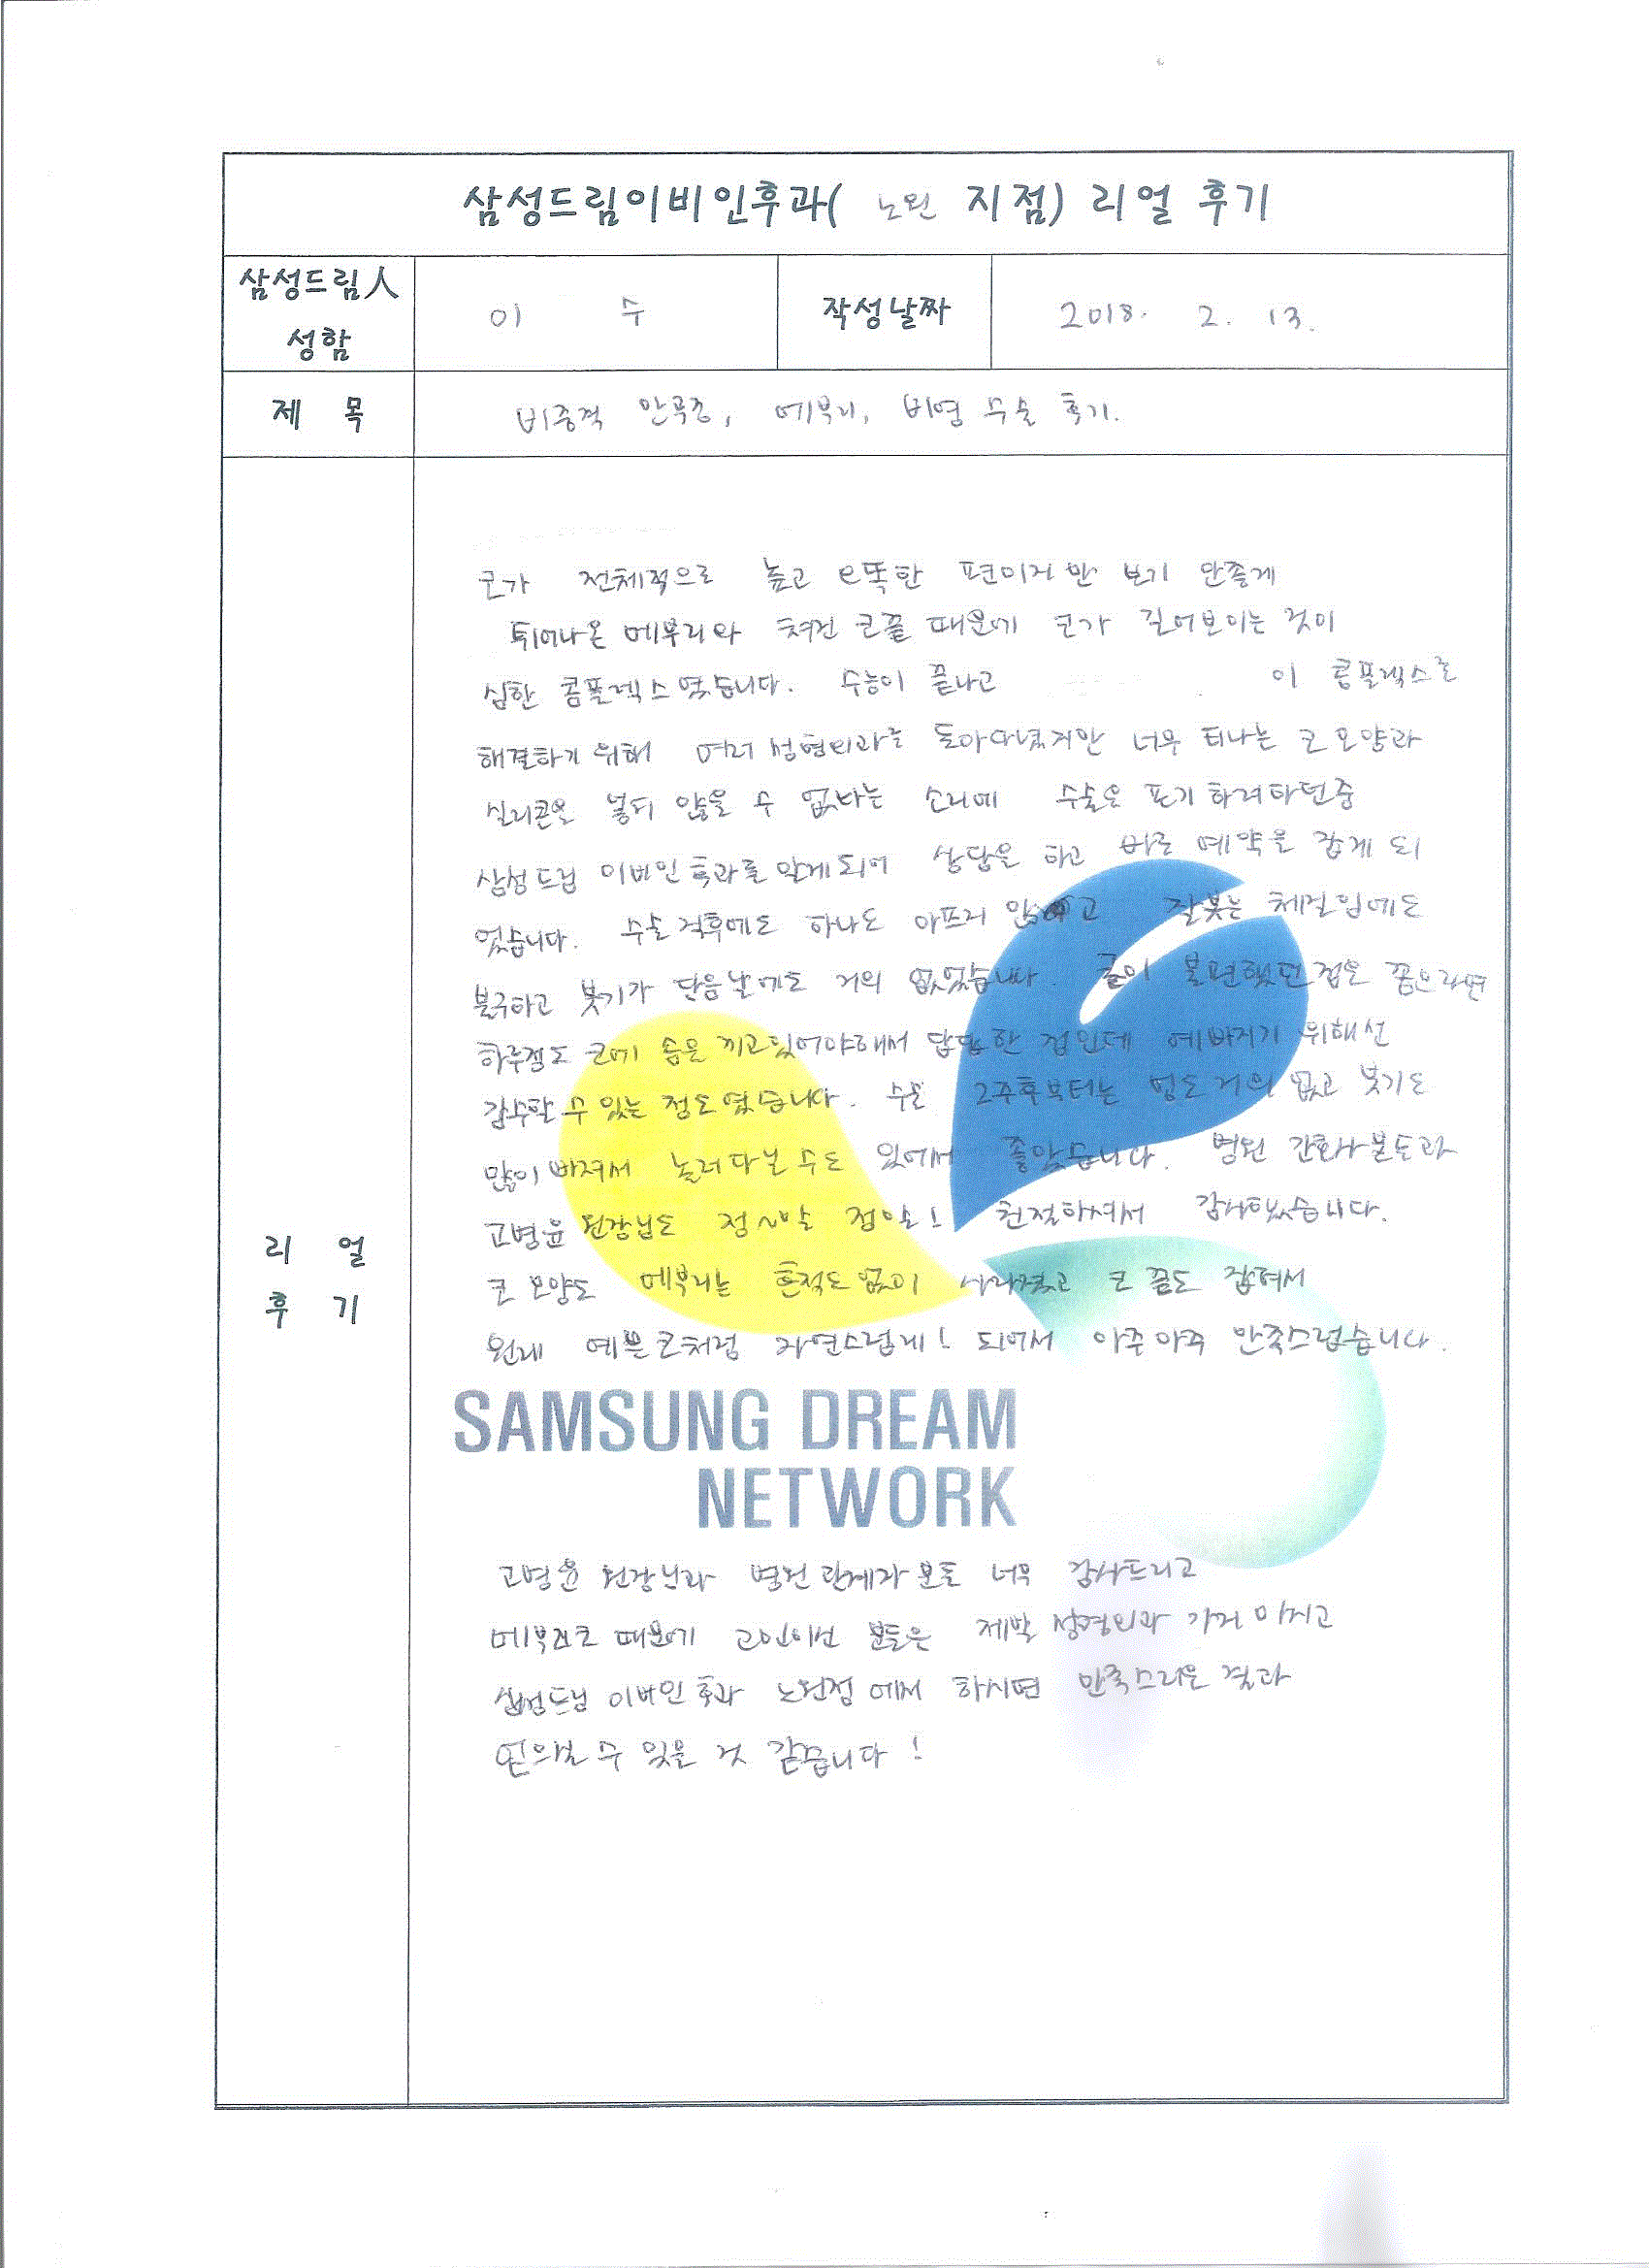 삼성드림이비인후과( 노원 지점) 리얼 후기
삼성드림人
성함
이 수
작성날짜
2018. 2. 13.
제 목
비중격 만곡증, 메부리, 비염 수술 후기.
코가 전체적으로 높고 오똑한 편이지만 보기 안좋게
튀어나온 메부리와 쳐진 코끝 때문에 코가 길어보이는 것이
심한 콤플렉스였습니다. 수능이 끝나고 이 콤플렉스를
해결하기 위해 여러 성형외과를 돌아다녔지만 너무 티나는 코 모양과
실리콘을 넣지 않을 수 없다는 소리에 수술을 포기 하려하던중
삼성드림 이비인후과를 알게되어 상담을 하고 바로 예약을 잡게 되
었습니다. 수술 직후에도 하나도 아프지 않고 잘붓는 체질임에도
불구하고 붓기가 다음날에도 거의 없었습니다. 굳이 불편했던점을 꼽으라면
하루정도 코에 솜을 끼고있어야해서 답답한 점인데 예뻐지기 위해선
감수할 수 있는 정도였습니다. 수술 2주후부터는 멍도 거의 없고 붓기도
많이 빠져서 놀러다닐 수도 있어서 좋았습니다. 병원 간호사분들과
고병윤 원장님도 정~말 정말! 친절하셔서 감사했습니다.
코 모양도 메부리는 흔적도 없이 사라졌고 코 끝도 잡혀서
원래 예쁜 코처럼 자연스럽게! 되어서 아주아주 만족스럽습니다.
SAMSUNG DREAM
NETWORK
고병윤 원장님과 병원 관계자 분들 너무 감사드리고
메부리코 때문에 고민이신 분들은 제발 성형외과 가지 마시고
삼성드림 이비인후과 노원점에서 하시면 만족스러운 결과
얻으실 수 있을 것 같습니다!
리 얼
후 기